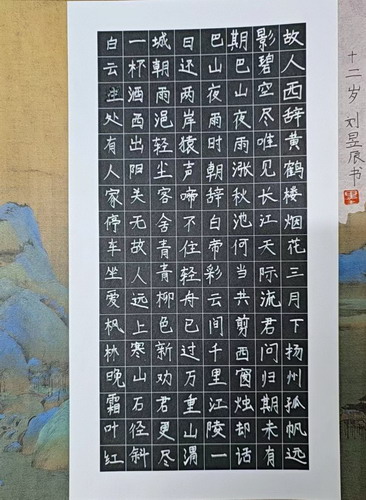 十二岁 刘昱辰书
故人西辞黄鹤楼烟花三月下扬州孤帆远
影碧空尽唯见长江天际流君问归期未有
期巴山夜雨涨秋池何当共剪西窗烛却话
巴山夜雨时朝辞白帝彩云间千里江陵一
日还两岸猿声啼不住轻舟已过万重山渭
城朝雨浥轻尘客舍青青柳色新劝君更尽
一杯酒西出阳关无故人远上寒山石径斜
白云生处有人家停车坐爱枫林晚霜叶红